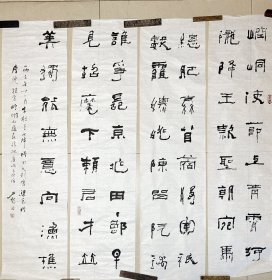 崆峒使節上青霄河
隴降王款聖朝宛馬
總肥春苜蓿將軍祇
數漢嫖姚陳留阮瑀
誰爭長京兆田郎早
見招麾下賴君才並
美獨能無意向漁樵